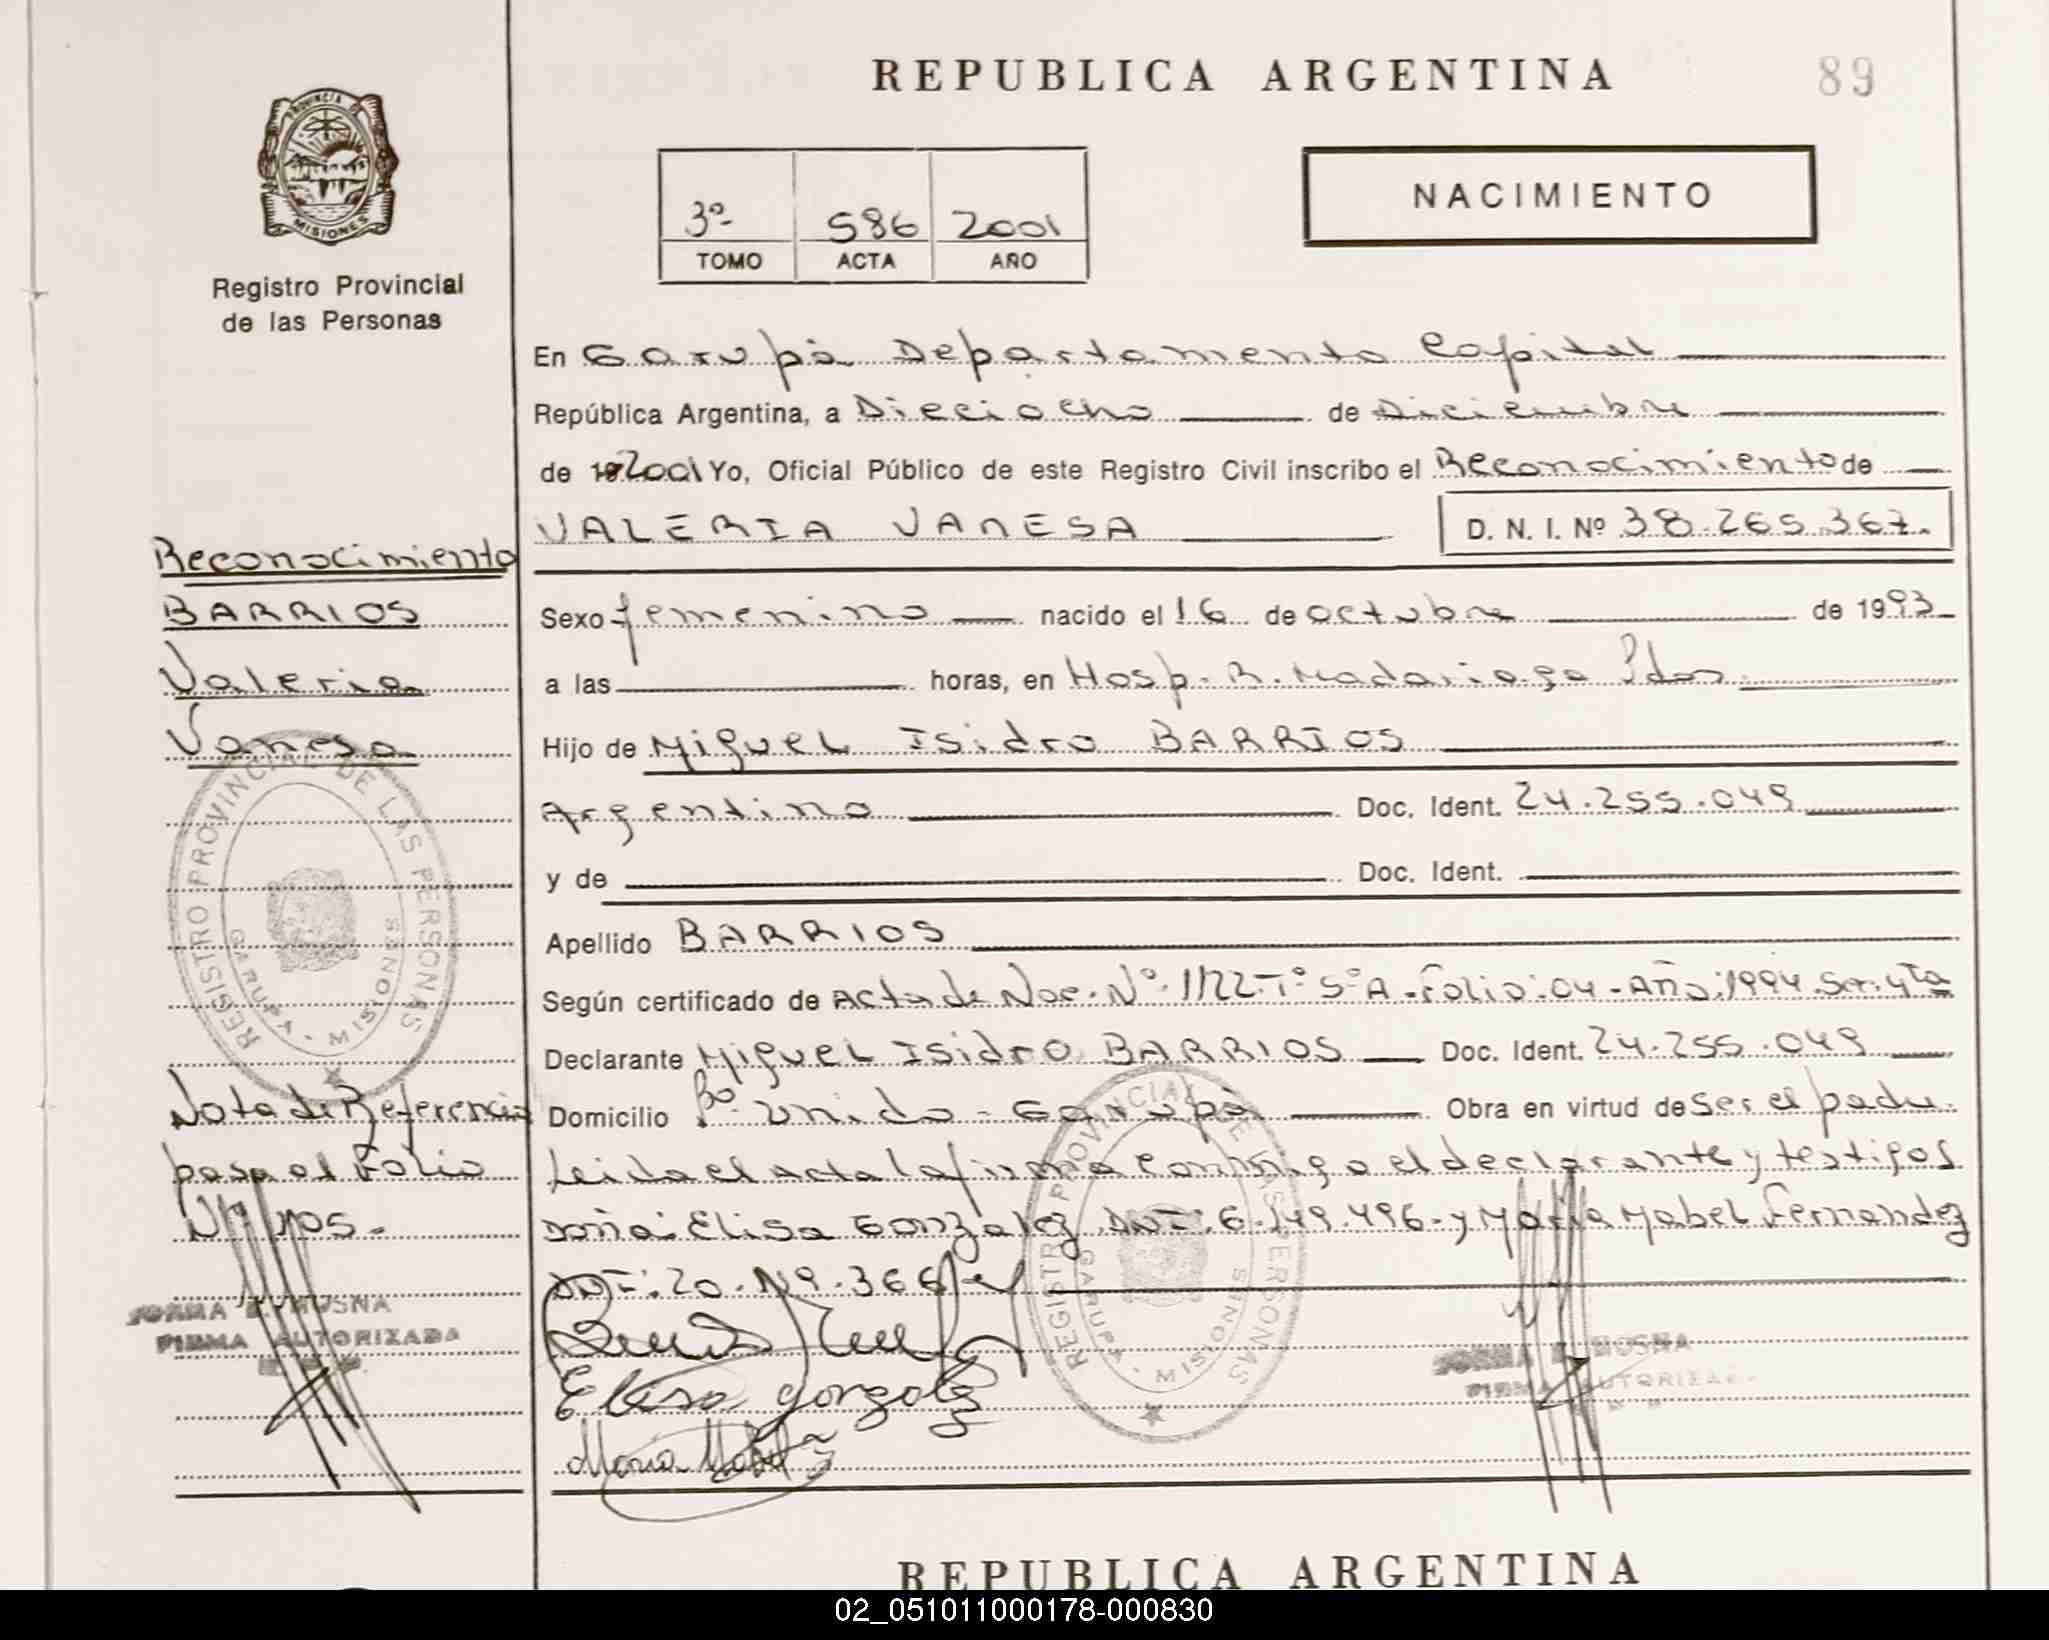 REPUBLICA ARGENTINA
89
PROVINCIA DE
MISIONES
Registro Provincial
de las Personas
3º 586 2001
TOMO ACTA AÑO
NACIMIENTO
En Garupá Departamento Capital
República Argentina, a Dieciocho de Diciembre
de 19 2001 Yo, Oficial Público de este Registro Civil inscribo el Reconocimiento de
VALERIA VANESA D. N. I. Nº 38.265.367.
Reconocimiento
BARRIOS
Valeria
Vanesa
Sexo femenino nacido el 16 de octubre de 1993
a las horas, en Hosp. R. Madariaga Pdas
Hijo de Miguel Isidro BARRIOS
Argentino Doc. Ident. 24.255.049
y de Doc. Ident.
Apellido BARRIOS
Según certificado de Acta de Nac. Nº 1122-Tº 5º A - Folio: 04 - Año: 1994
Declarante Miguel Isidro BARRIOS Doc. Ident. 24.255.049
Domicilio Bº Unido - Garupá Obra en virtud de Ser el padre.
Leida el acta la firma conmigo el declarante y testigos
doña: Elisa Gonzalez DNI: 6.149.496 - y María Mabel Fernandez
Nota de Referencia
pasa al Folio
REGISTRO PROVINCIAL DE LAS PERSONAS
GARUPA - MISIONES
FIRMA AUTORIZADA
Elisa Gonzalez
REGISTRO PROVINCIAL DE LAS PERSONAS
GARUPA - MISIONES
FIRMA AUTORIZADA
REPUBLICA ARGENTINA
02_051011000178-000830